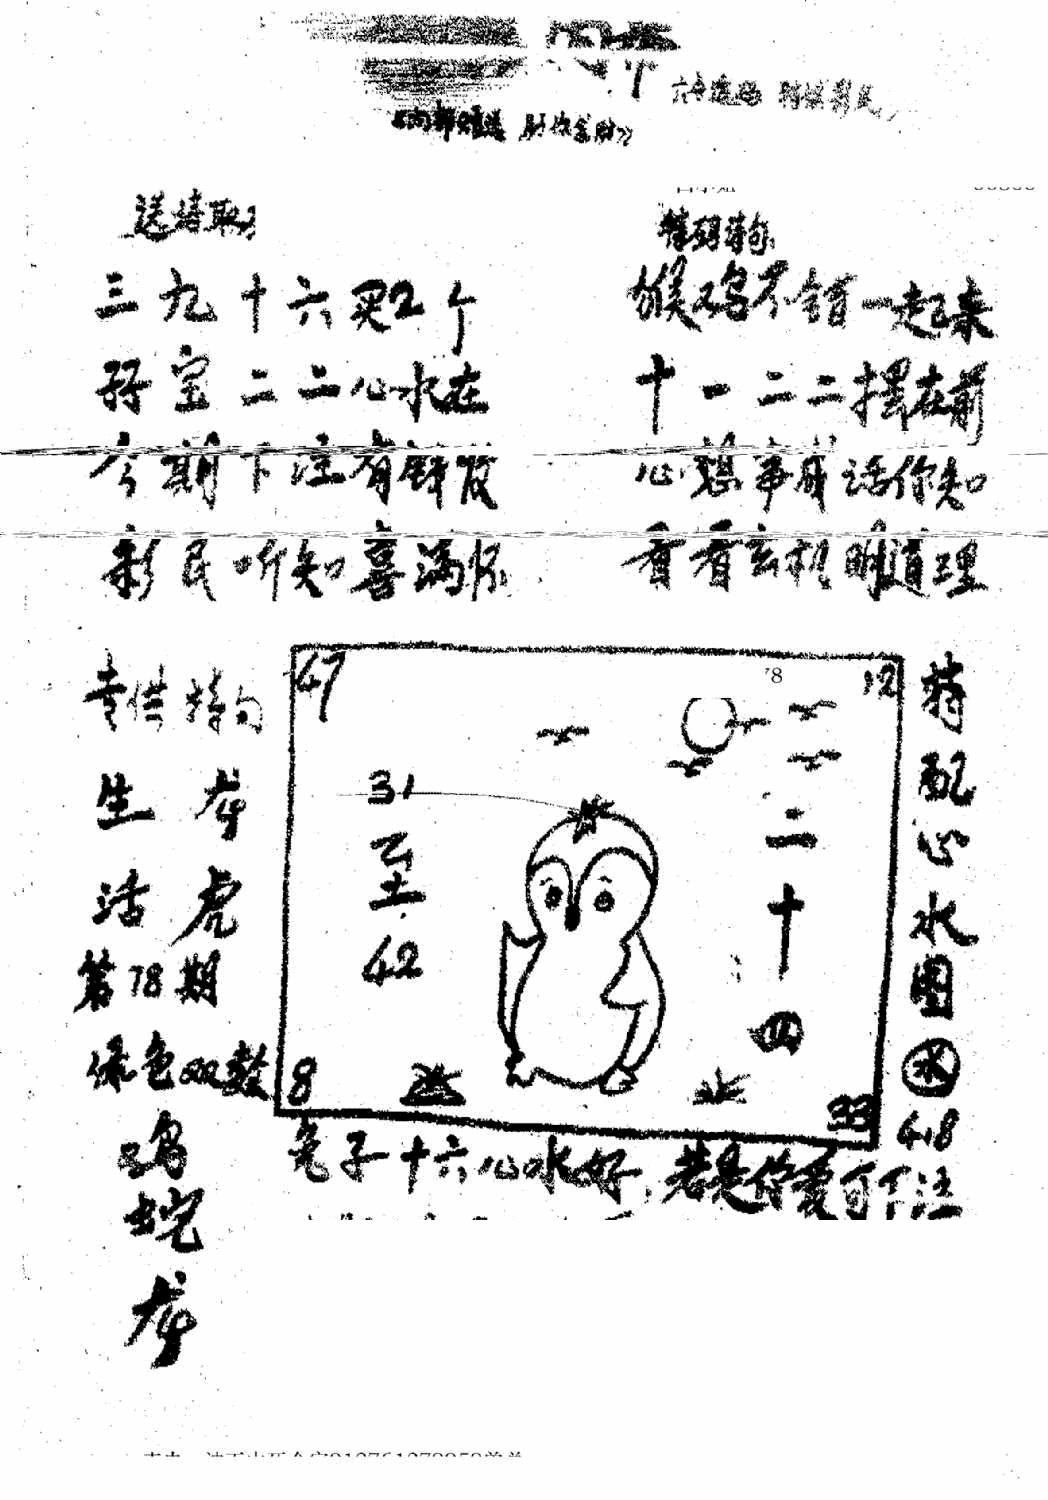 三九十六买2个
孖宝二二心水在
今期下注有钱发
彩民听知喜满怀
特码诗句
猴鸡不错一起来
十一二二摆在前
心想事成话你知
看看玄机明道理
专供特句
生
活
虎
第78期
绿色双数
鸡
蛇
47
78
12
31
至
42
二
十
四
8
33
特
配
心
水
图
水
4.8
兔子十六心水好,若是你爱可下注